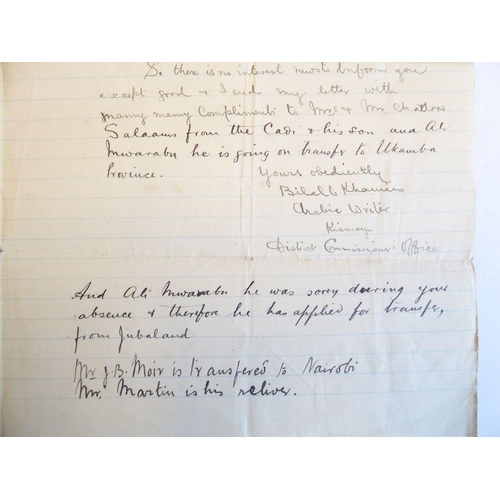 So there is no interest news to Inform you
except good & I send my letter with
many many Compliments to Mrs & Mr.
Salaams from the Cadi & his son and Ali
Mwarabu he is going on transfer to Ukamba
Province. Yours obediently
Bilal Khamis
Arabic Writer
Kismayu
District Commissioner's Office
And Ali Mwarabu he was sorry during your
absence & therefore he has applied for transfer,
from Jubaland
Mr J.B. Moir is transfered to Nairobi
Mr. Martin is his reliver.